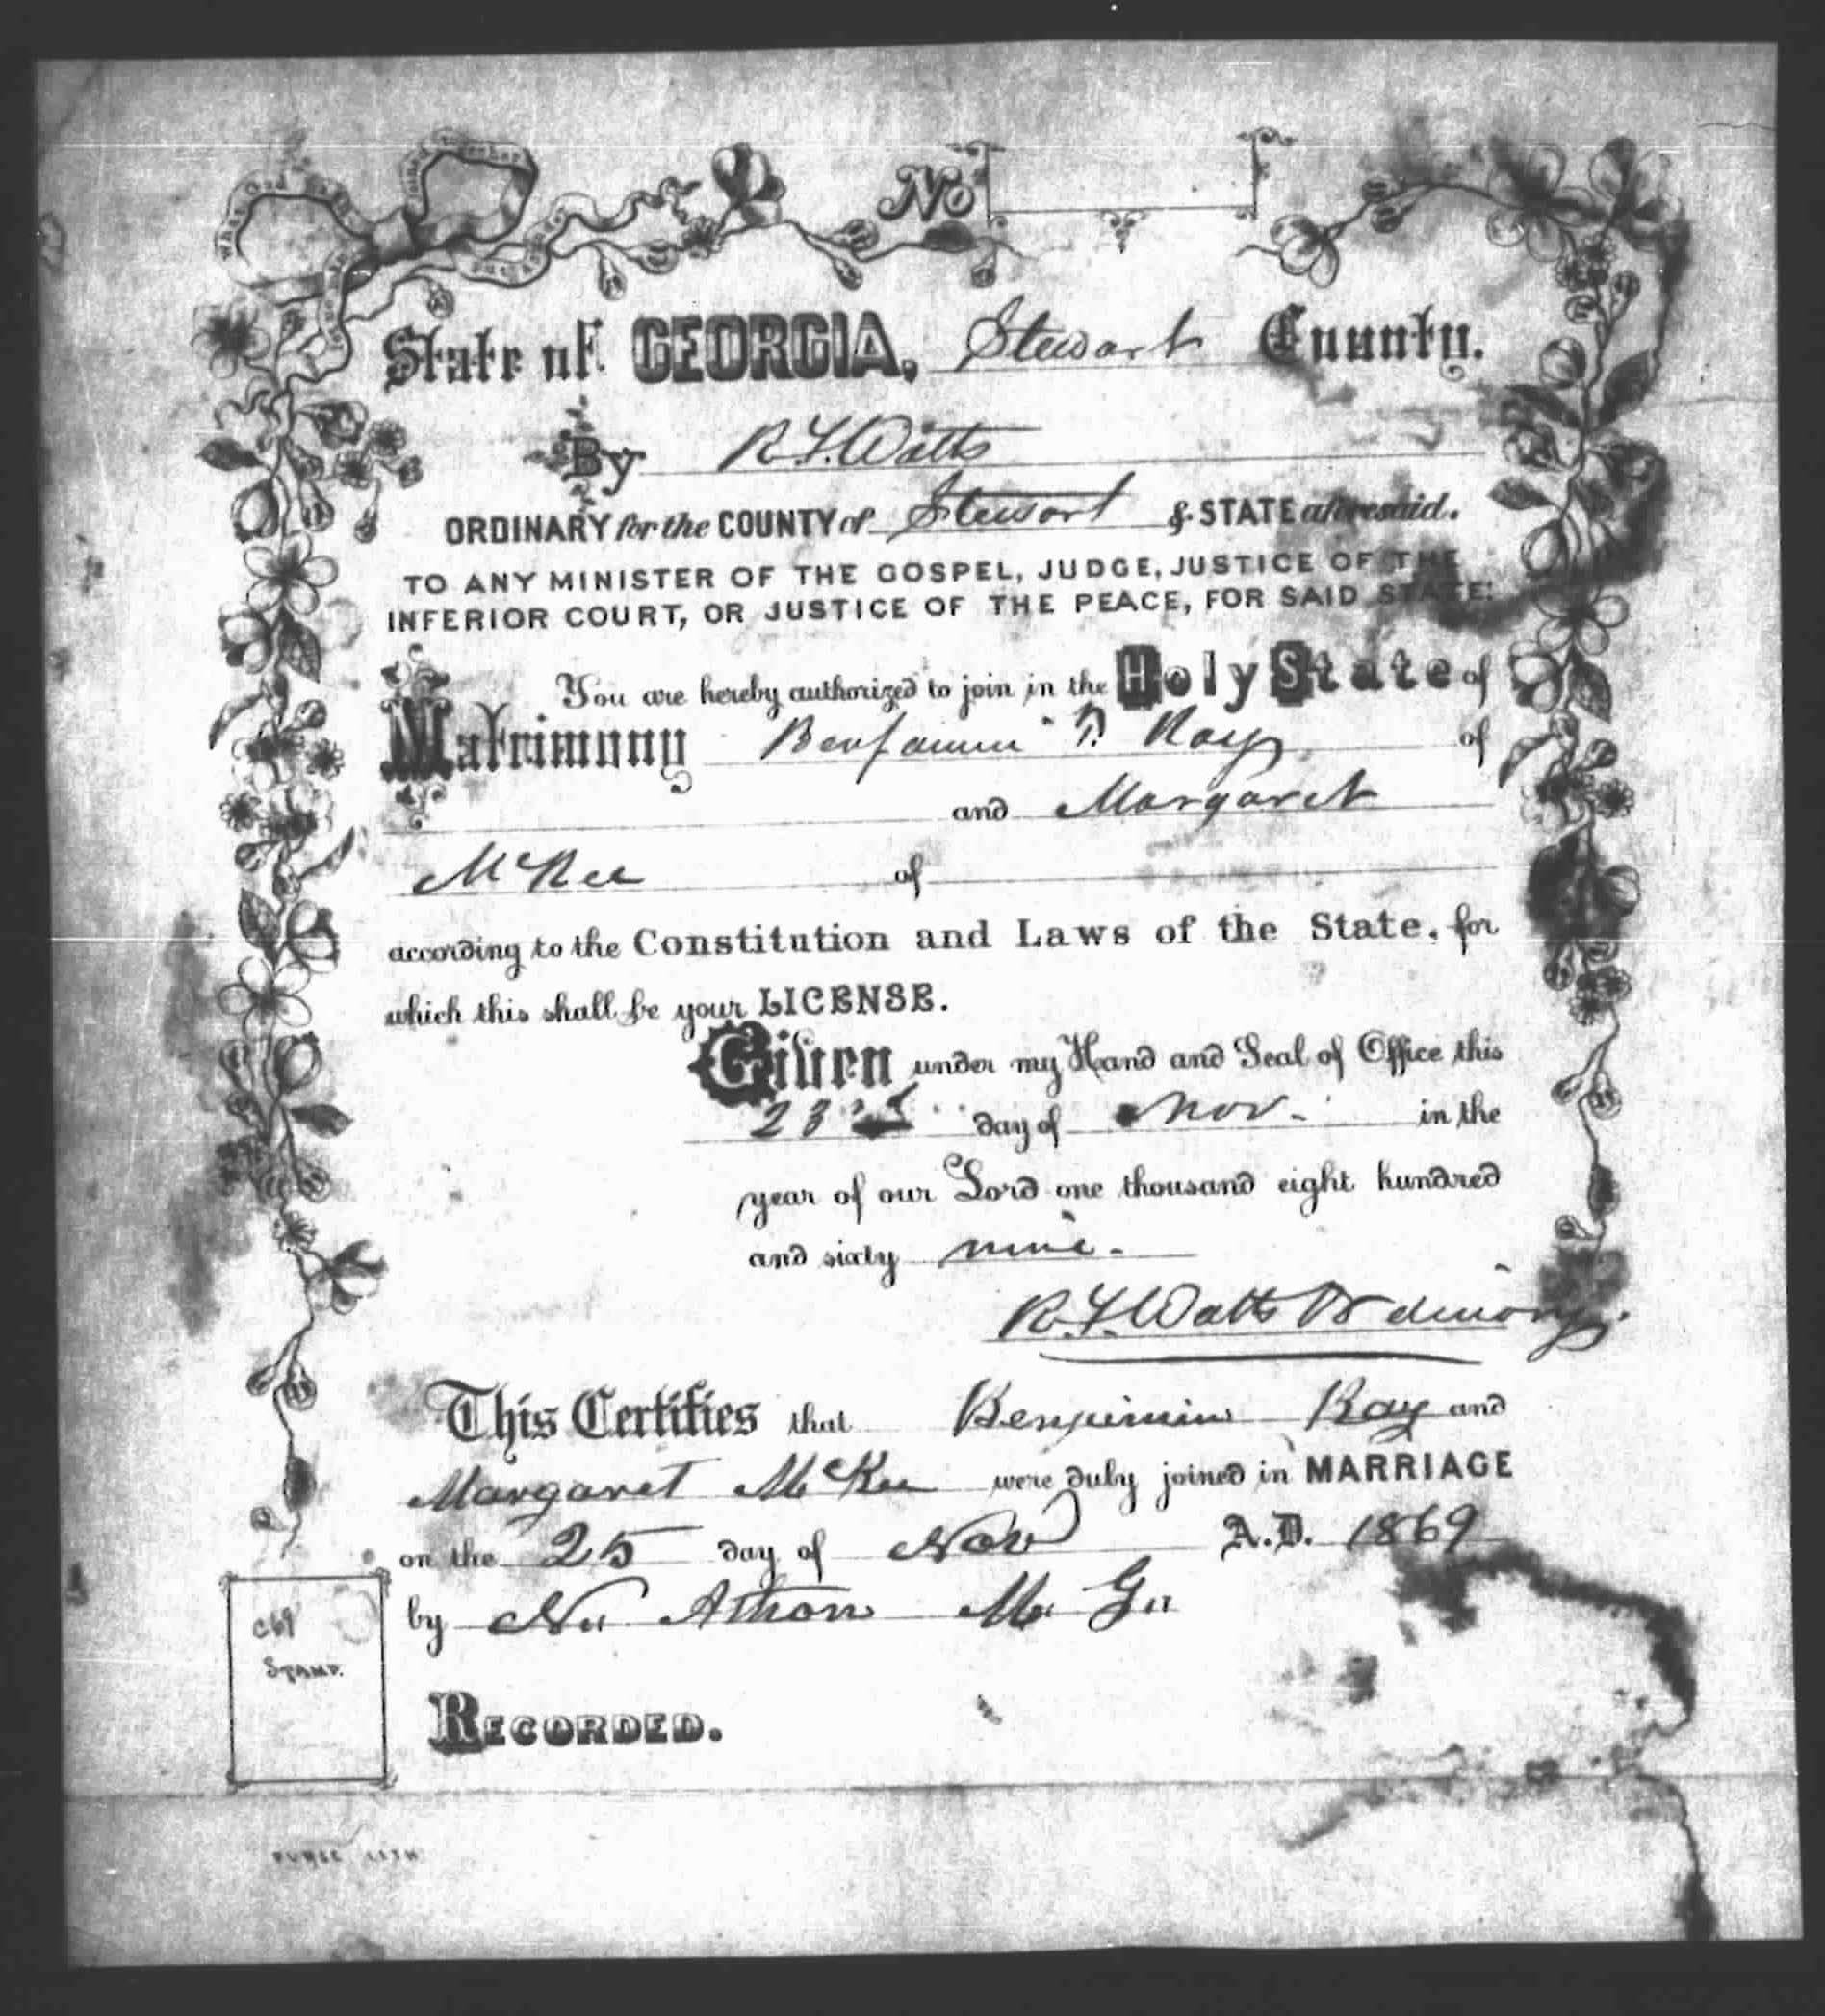 No
State of GEORGIA, Stewart County.
By R. F. Watts
ORDINARY for the COUNTY of Stewart & STATE aforesaid.
TO ANY MINISTER OF THE GOSPEL, JUDGE, JUSTICE OF THE
INFERIOR COURT, OR JUSTICE OF THE PEACE, FOR SAID STATE:
You are hereby authorized to join in the Holy State of
Matrimony Benjamin Ray of
and Margaret
McKee of
according to the Constitution and Laws of the State, for
which this shall be your LICENSE.
Given under my Hand and Seal of Office this
23 day of Nov. in the
year of our Lord one thousand eight hundred
and sixty nine.
R. F. Watts Ordinary.
This Certifies that Benjimin Ray and
Margaret McKee were duly joined in MARRIAGE
on the 25 day of Nov A.D. 1869
by
STAMP.
RECORDED.